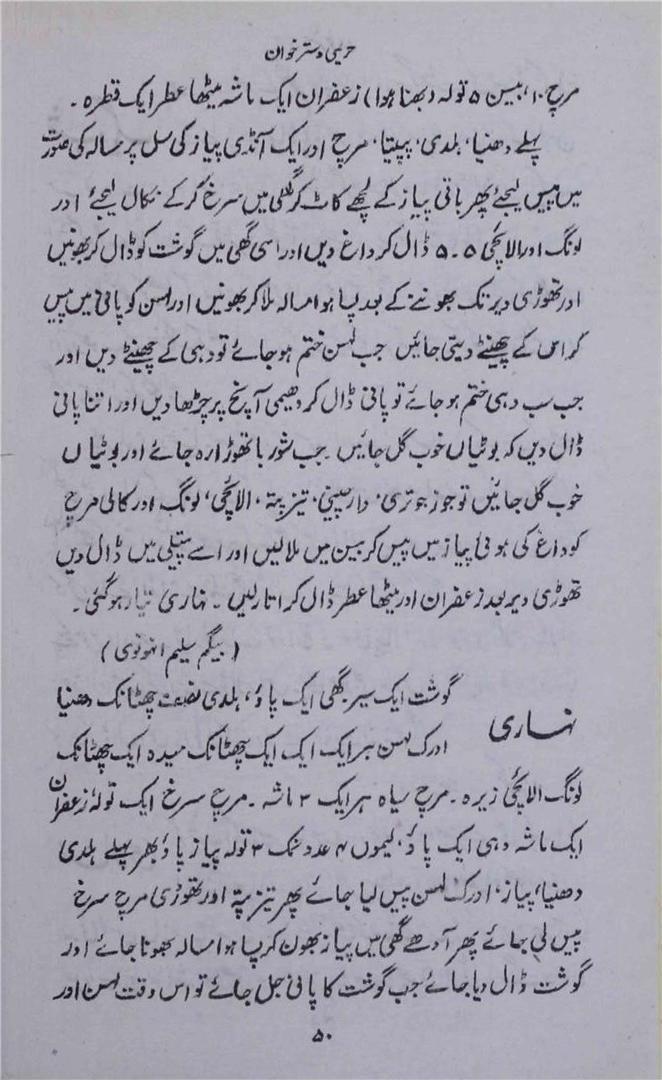 حریمی دسترخوان
مرچ ۱۰، بیسن ۵ تولہ (بھنا ہوا) زعفران ایک ماشہ میٹھا عطر ایک قطرہ ۔
پہلے دھنیا، ہلدی، پپیتا، مرچ اور ایک آنڈی پیاز کی سل پر مسالہ کی صورت
میں پیس لیجئے پھر باقی پیاز کے لچھے کاٹ کر گھی میں سرخ کر کے نکال لیجئے اور
لونگ اور الائچی ۵ ۔ ۵ ڈال کر داغ دیں اور اسی گھی میں گوشت کو ڈال کر بھونیں
اور تھوڑی دیر تک بھوننے کے بعد پسا ہوا مسالہ ملا کر بھونیں اور لہسن کو پانی میں پیس
کر اس کے چھینٹے دیتی جائیں جب لہسن ختم ہو جائے تو دہی کے چھینٹے دیں اور
جب سب دہی ختم ہو جائے تو پانی ڈال کر دھیمی آپنچ پر چڑھا دیں اور اتنا پانی
ڈال دیں کہ بوٹیاں خوب گل جائیں ۔ جب شوربا تھوڑا رہ جائے اور بوٹیاں
خوب گل جائیں تو جوز جوتری، دارچینی، تیزپتہ، الائچی، لونگ اور کالی مرچ
کو داغ کی ہوئی پیاز میں پیس کر بیسن میں ملا لیں اور اسے پتیلی میں ڈال دیں
تھوڑی دیر بعد زعفران اور میٹھا عطر ڈال کر اتار لیں ۔ نہاری تیار ہو گئی ۔
(بیگم سلیم انہونوی)
نہاری
گوشت ایک سیر گھی ایک پاؤ، ہلدی نصف چھٹانک دھنیا
ادرک لہسن ہر ایک ایک ایک چھٹانک میدہ ایک چھٹانک
لونگ الائچی زیرہ ۔ مرچ سیاہ ہر ایک ۳ ماشہ ۔ مرچ سرخ ایک تولہ زعفران
ایک ماشہ دہی ایک پاؤ، لیموں ۴ عدد نمک ۳ تولہ پیاز پاؤ بھر پہلے ہلدی
دھنیا، پیاز، ادرک لہسن پیس لیا جائے پھر تیزپتہ اور تھوڑی مرچ سرخ
پیس لی جائے پھر آدھے گھی میں پیاز بھون کر پسا ہوا مسالہ بھونا جائے اور
گوشت ڈال دیا جائے جب گوشت کا پانی جل جائے تو اس وقت لہسن اور
۵۰